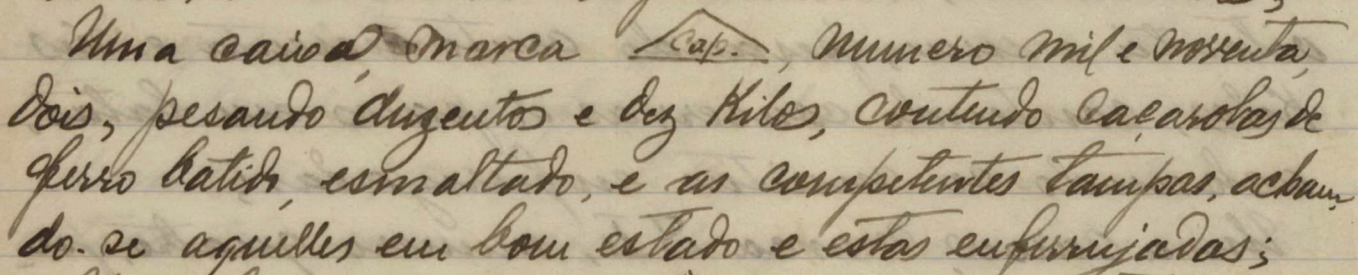 Uma caixa, marca Cap., numero mil e noventa
dois, pesando duzentos e dez Kilos, contendo caçarolas de
ferro batido, esmaltado, e as competentes tampas, achan-
do-se aquelles em bom estado e estas enferrujadas;